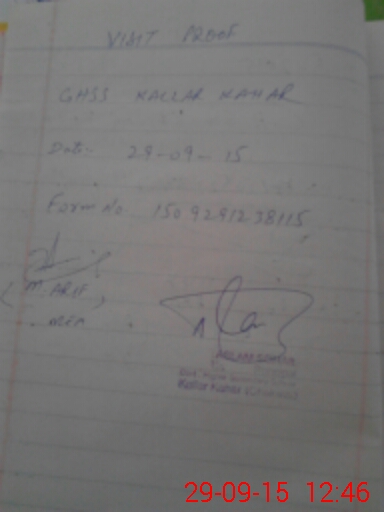 VISIT PROOF
GHSS KALLAR KAHAR
Date:- 29-09-15
Form No. 1509291238115
(M. ARIF)
MEA
Kallar Kahar
29-09-15 12:46